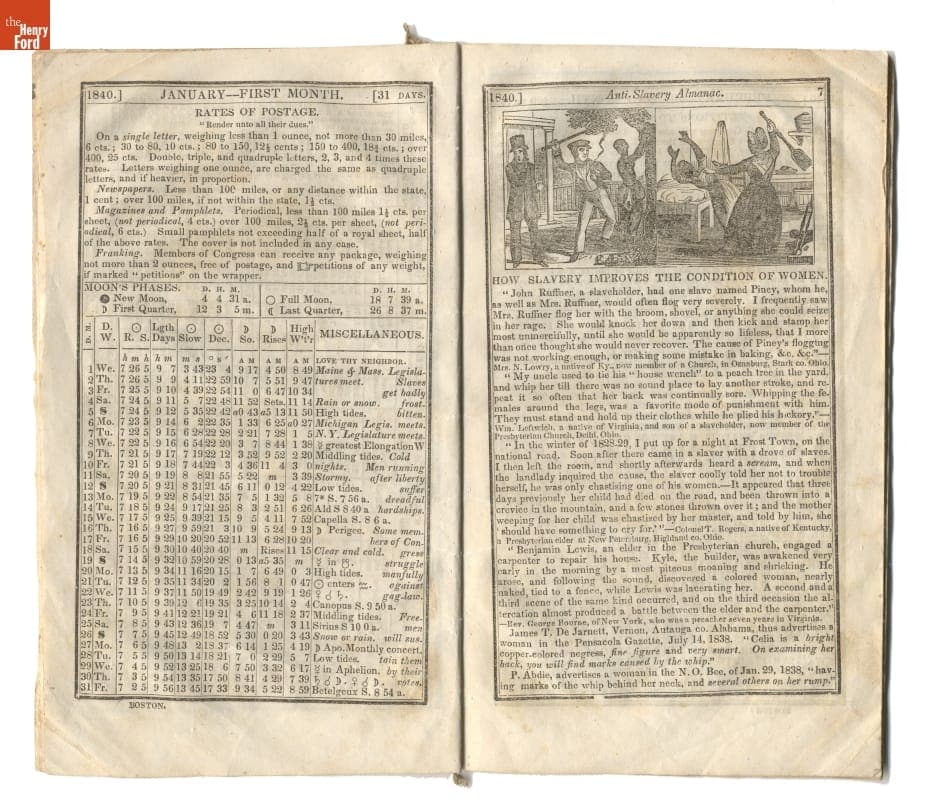 the
Henry
Ford
1840.] JANUARY—FIRST MONTH. [31 DAYS.
RATES OF POSTAGE.
"Render unto all their dues."
On a single letter, weighing less than 1 ounce, not more than 30 miles,
6 cts.; 30 to 80, 10 cts.; 80 to 150, 12½ cents; 150 to 400, 18¾ cts.; over
400, 25 cts. Double, triple, and quadruple letters, 2, 3, and 4 times these
rates. Letters weighing one ounce, are charged the same as quadruple
letters, and if heavier, in proportion.
Newspapers. Less than 100 miles, or any distance within the state,
1 cent; over 100 miles, if not within the state, 1½ cts.
Magazines and Pamphlets. Periodical, less than 100 miles 1½ cts. per
sheet, (not periodical, 4 cts.) over 100 miles, 2½ cts. per sheet, (not peri-
odical, 6 cts.) Small pamphlets not exceeding half of a royal sheet, half
of the above rates. The cover is not included in any case.
Franking. Members of Congress can receive any package, weighing
not more than 2 ounces, free of postage, and petitions of any weight,
if marked "petitions" on the wrapper.
MOON'S PHASES. D. H. M. D. H. M.
New Moon, 4 4 31 a. Full Moon, 18 7 39 a.
First Quarter, 12 3 5 m. Last Quarter, 26 8 37 m.
D. M. D. W. ☉ R. S. Lgth Days ☉ Slow ☉ Dec. ☽ So. ☽ Rises High W't'r MISCELLANEOUS.
h m h h m m s ° s ' A M A M A M LOVE THY NEIGHBOR.
1 We. 7 26 5 9 7 3 43 23 4 9 17 4 50 8 49 Maine & Mass. Legisla-
2 Th. 7 26 5 9 9 4 11 22 59 10 7 5 51 9 47 tures meet. Slaves
3 Fr. 7 25 5 9 10 4 39 22 54 11 0 6 47 10 34 get badly
4 Sa. 7 24 5 9 11 5 7 22 48 11 52 Sets. 11 14 Rain or snow. frost-
5 S 7 24 5 9 12 5 35 22 42 a0 43 a5 13 11 50 High tides. bitten.
6 Mo. 7 23 5 9 14 6 2 22 35 1 33 6 25 a0 27 Michigan Legis. meets.
7 Tu. 7 22 5 9 15 6 28 22 28 2 21 7 28 1 5 N.Y. Legislature meets.
8 We. 7 22 5 9 16 6 54 22 20 3 7 8 44 1 38 ☿ greatest Elongation W
9 Th. 7 21 5 9 17 7 19 22 12 3 52 9 52 2 20 Middling tides. Cold
10 Fr. 7 21 5 9 18 7 44 22 3 4 36 11 4 3 0 nights. Men running
11 Sa. 7 20 5 9 19 8 8 21 55 5 22 m 3 39 Stormy. after liberty
12 S 7 20 5 9 21 8 31 21 45 6 11 0 12 4 22 Low tides. suffer
13 Mo. 7 19 5 9 22 8 54 21 35 7 5 1 32 5 8 7* S. 7 56 a. dreadful
14 Tu. 7 18 5 9 24 9 17 21 25 8 3 2 51 6 26 Ald S 8 40 a hardships.
15 We. 7 17 5 9 25 9 39 21 15 9 5 4 11 7 52 Capella S. 8 6 a.
16 Th. 7 16 5 9 27 9 59 21 3 10 9 5 24 9 13 ☽ Perigee. Some mem-
17 Fr. 7 16 5 9 29 10 20 20 52 11 13 6 28 10 20 bers of Con-
18 Sa. 7 15 5 9 30 10 40 20 40 m Rises 11 15 Clear and cold. gress
19 S 7 14 5 9 32 10 59 20 28 0 13 a5 35 m ☿ in ☋. struggle
20 Mo. 7 13 5 9 34 11 16 20 15 1 7 6 49 0 3 High tides. manfully
21 Tu. 7 12 5 9 35 11 34 20 2 1 56 8 1 0 47 ☉ enters ♒. against
22 We. 7 11 5 9 37 11 50 19 49 2 42 9 19 1 26 ♀ ☌ ♄. gag-law.
23 Th. 7 10 5 9 39 12 6 19 35 3 25 10 14 2 4 Canopus S. 9 50 a.
24 Fr. 7 9 5 9 41 12 22 19 21 4 6 11 18 2 37 Middling tides. Free-
25 Sa. 7 8 5 9 43 12 36 19 7 4 47 m 3 11 Sirius S 10 0 a. men
26 S 7 7 5 9 45 12 49 18 52 5 30 0 20 3 43 Snow or rain. will sus-
27 Mo. 7 6 5 9 48 13 2 18 37 6 14 1 25 4 19 ☽ Apo. Monthly concert.
28 Tu. 7 5 5 9 50 13 14 18 21 7 0 2 29 5 7 Low tides. tain them
29 We. 7 4 5 9 52 13 25 18 6 7 50 3 32 6 17 ☿ in Aphelion. by their
30 Th. 7 3 5 9 54 13 35 17 50 8 41 4 29 7 39 ♄ ☌ ☽. ♀ ☌ ☽. votes.
31 Fr. 7 2 5 9 56 13 45 17 33 9 34 5 22 8 59 Betelgeux S. 8 54 a.
BOSTON.
1840.] Anti-Slavery Almanac. 7
HOW SLAVERY IMPROVES THE CONDITION OF WOMEN.
"John Ruffner, a slaveholder, had one slave named Piney, whom he,
as well as Mrs. Ruffner, would often flog very severely. I frequently saw
Mrs. Ruffner flog her with the broom, shovel, or anything she could seize
in her rage. She would knock her down and then kick and stamp her
most unmercifully, until she would be apparently so lifeless, that I more
than once thought she would never recover. The cause of Piney's flogging
was not working enough, or making some mistake in baking, &c. &c."—
Mrs. N. Lowry, a native of Ky., now member of a Church, in Osnaburg, Stark co. Ohio.
"My uncle used to tie his "house wench" to a peach tree in the yard,
and whip her till there was no sound place to lay another stroke, and re-
peat it so often that her back was continually sore. Whipping the fe-
males around the legs, was a favorite mode of punishment with him.
They must stand and hold up their clothes while he plied his hickory."—
Wm. Leftwich, a native of Virginia, and son of a slaveholder, now member of the
Presbyterian Church, Delhi, Ohio.
"In the winter of 1828-29, I put up for a night at Frost Town, on the
national road. Soon after there came in a slaver with a drove of slaves.
I then left the room, and shortly afterwards heard a scream, and when
the landlady inquired the cause, the slaver coolly told her not to trouble
herself, he was only chastising one of his women.—It appeared that three
days previously her child had died on the road, and been thrown into a
crevice in the mountain, and a few stones thrown over it; and the mother
weeping for her child was chastised by her master, and told by him, she
'should have something to cry for.'"—Colonel T. Rogers, a native of Kentucky,
a Presbyterian elder at New Petersburg, Highland co. Ohio.
"Benjamin Lewis, an elder in the Presbyterian church, engaged a
carpenter to repair his house. Kyle, the builder, was awakened very
early in the morning by a most piteous moaning and shrieking. He
arose, and following the sound, discovered a colored woman, nearly
naked, tied to a fence, while Lewis was lacerating her. A second and a
third scene of the same kind occurred, and on the third occasion the al-
tercation almost produced a battle between the elder and the carpenter."
—Rev. George Bourne, of New York, who was a preacher seven years in Virginia.
James T. De Jarnett, Vernon, Autauga co. Alabama, thus advertises a
woman in the Pensacola Gazette, July 14, 1838. "Celia is a bright
copper-colored negress, fine figure and very smart. On examining her
back, you will find marks caused by the whip."
P. Abdie, advertises a woman in the N. O. Bee, of Jan. 29, 1838, "hav-
ing marks of the whip behind her neck, and several others on her rump."